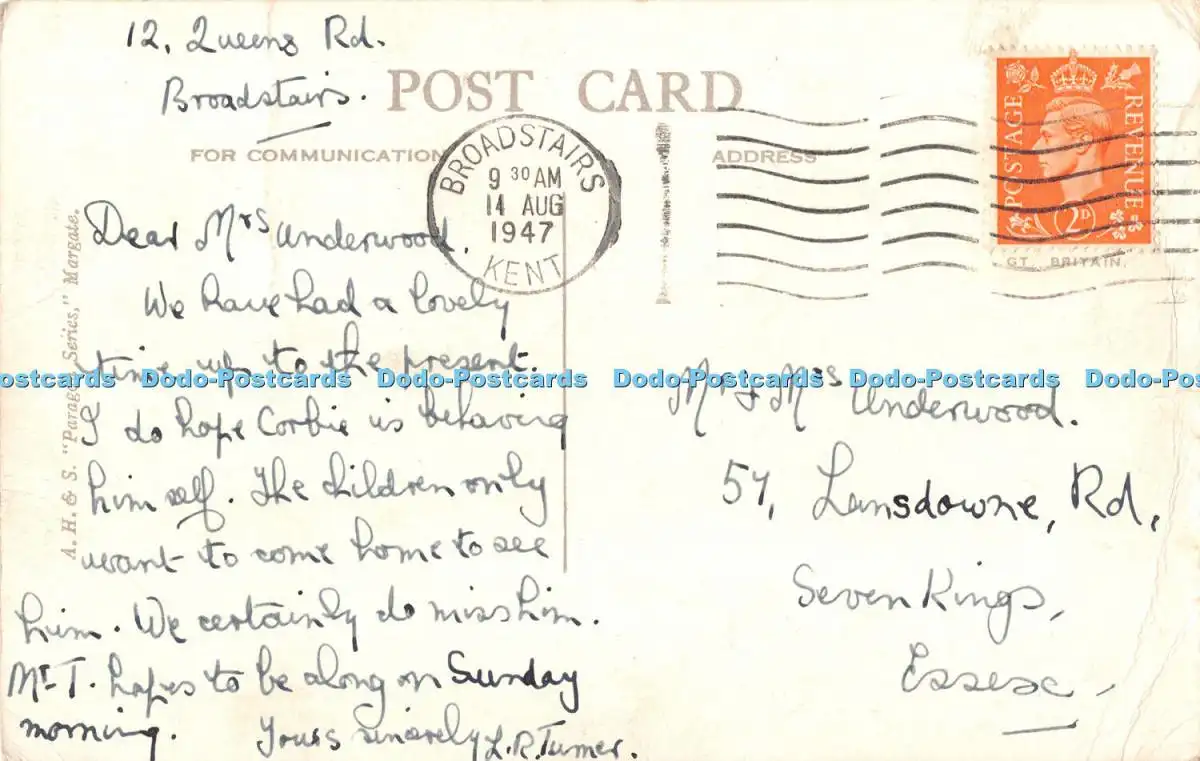 12, Queens Rd.
Broadstairs.
POST CARD
FOR COMMUNICATION
ADDRESS
BROADSTAIRS
9 30 AM
14 AUG
1947
KENT
POSTAGE
REVENUE
2D
GT. BRITAIN.
A. H. & S. "Paragon Series," Margate.
Dear Mrs Underwood,
We have had a lovely
time up to the present.
I do hope Corbie is behaving
himself. The children only
want to come home to see
him. We certainly do miss him.
Mr T. hopes to be along on Sunday
morning. Yours sincerely L.R. Turner.
Mr & Mrs Underwood.
57, Lansdowne, Rd,
Seven Kings,
Essex
ostcards Dodo-Postcards Dodo-Postcards Dodo-Postcards Dodo-Postcards Dodo-Pos